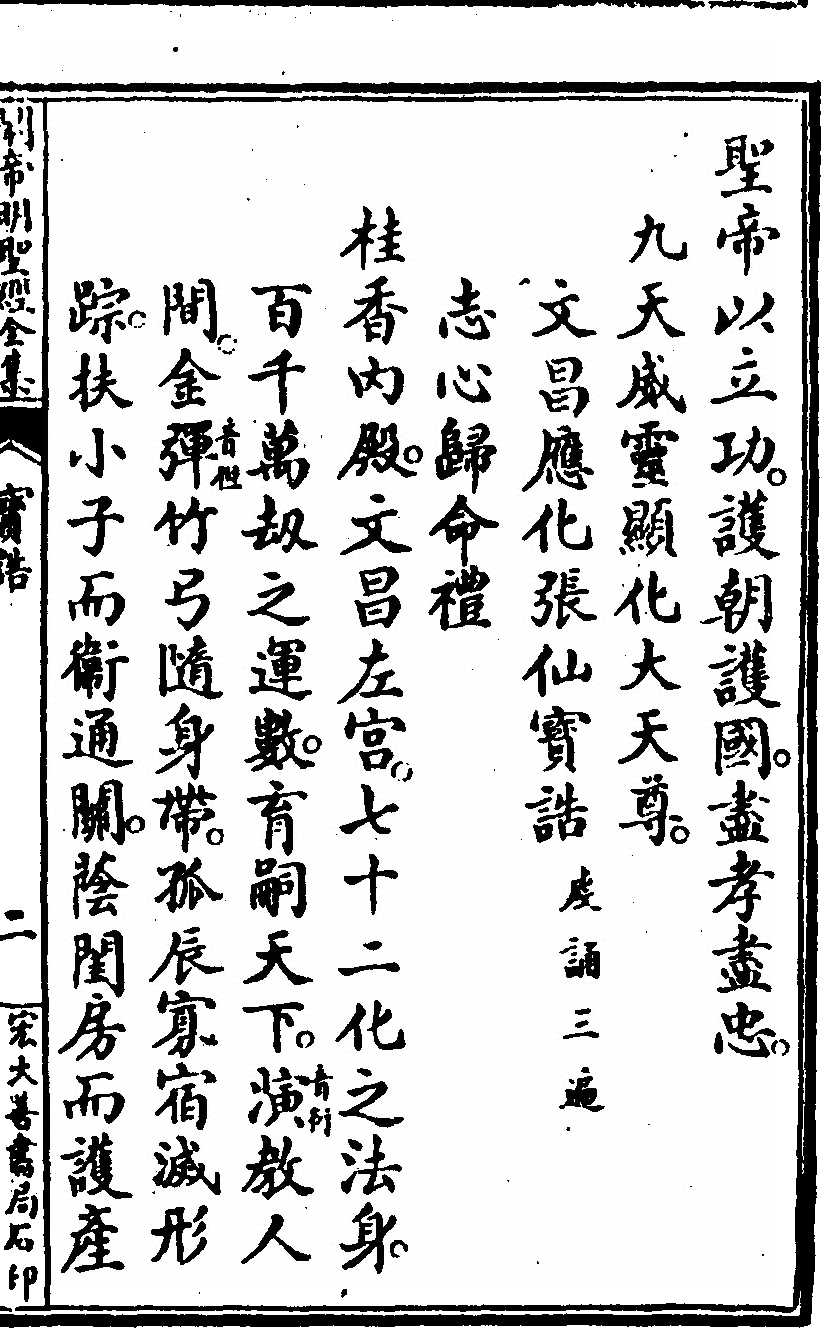 聖帝以立功。護朝護國。盡孝盡忠。
九天威靈顯化大天尊。
文昌應化張仙寶誥 虔誦三遍
志心歸命禮
桂香內殿。文昌左宮。七十二化之法身。
百千萬劫之運數。育嗣天下。演音衍教人
間。金彈音但竹弓隨身帶。孤辰寡宿滅形
踪。扶小子而衛通關。蔭閨房而護產
關帝明聖經全集 寶誥 二 宏大善書局石印